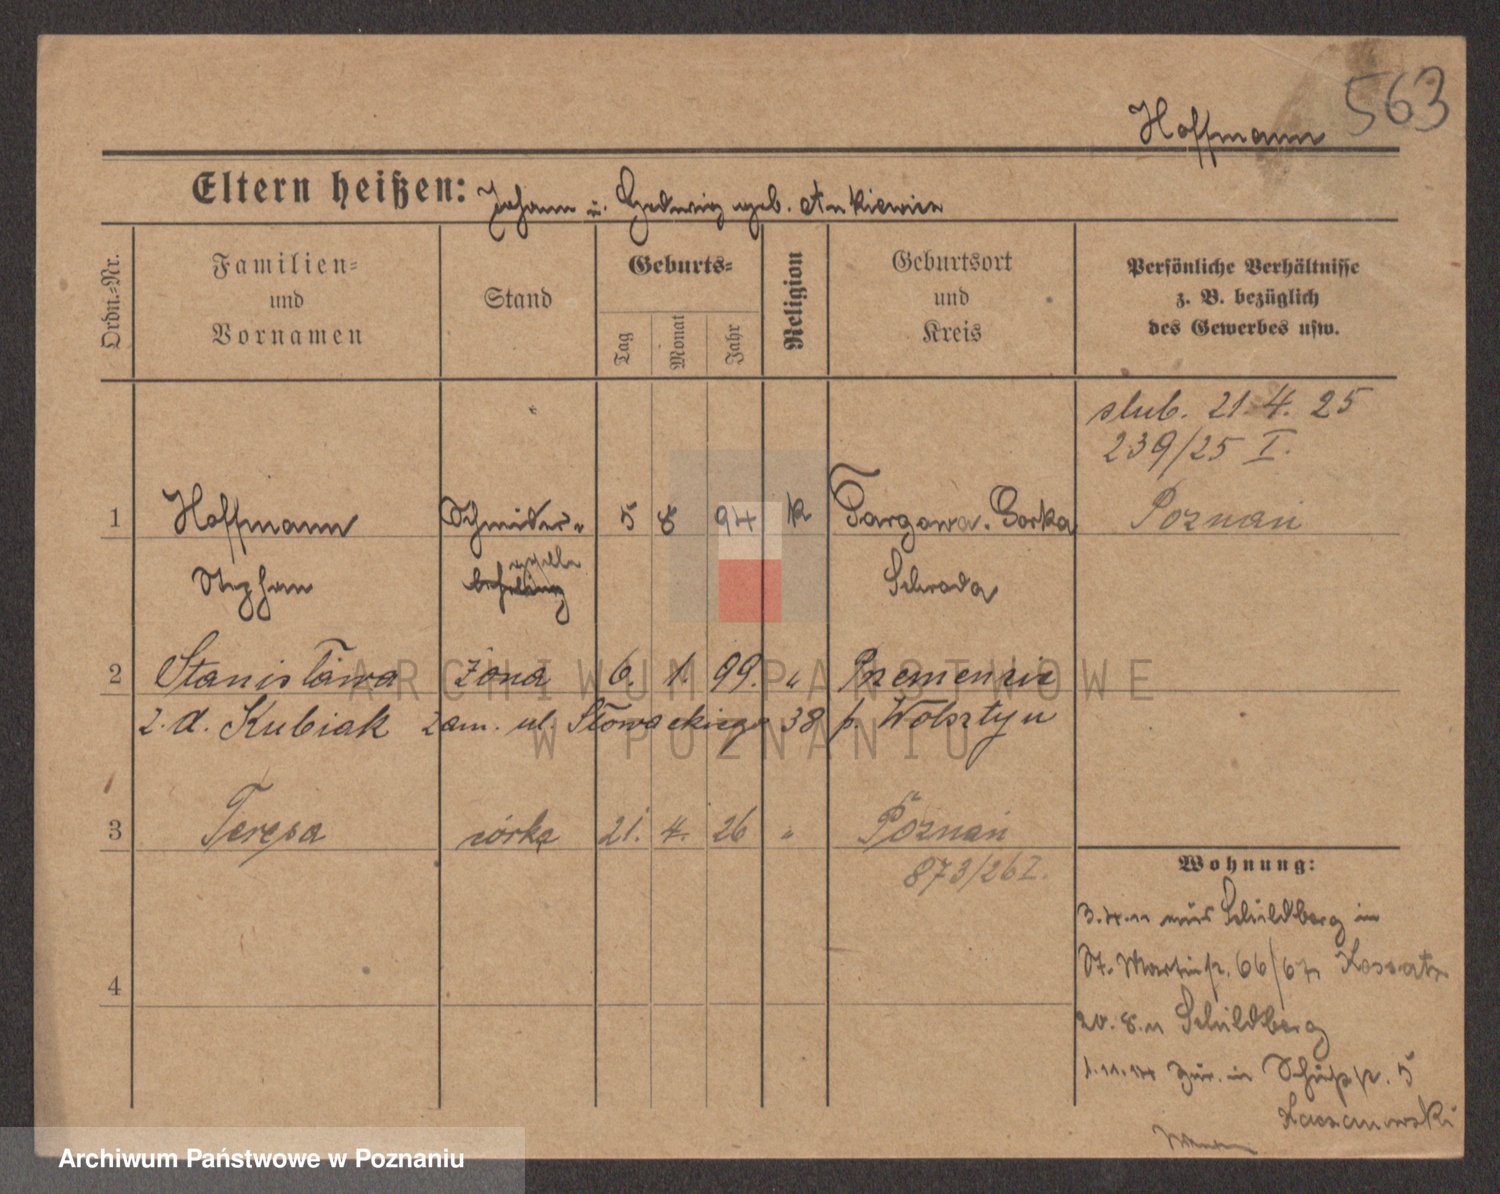 563
Hoffmann
Eltern heißen: Johann u. Hedwig geb. Ankiewicz
Ordn.-Nr.
Familien-
und
Vornamen
Stand
Geburts-
Tag
Monat
Jahr
Religion
Geburtsort
und
Kreis
Persönliche Verhältnisse
z. B. bezüglich
des Gewerbes usw.
slub. 21.4.25
239/25 I.
Poznań
1 Hoffmann Schneider- 5 8 94 k Targowa-Gorka
Stephan Schroda
2 Stanisława żona 6. 1. 99. " Przemencie
z.d. Kubiak zam. ul. Słowackiego 38 p. Wolsztyn
3 Teresa córka 21. 4. 26 " Poznań
873/26 I.
4
Wohnung:
aus Schildberg in
St. Martinstr. 66/67
20.8. Schildberg
zur. in Schützstr. 5
ARCHIWUM PAŃSTWOWE
W POZNANIU
Archiwum Państwowe w Poznaniu